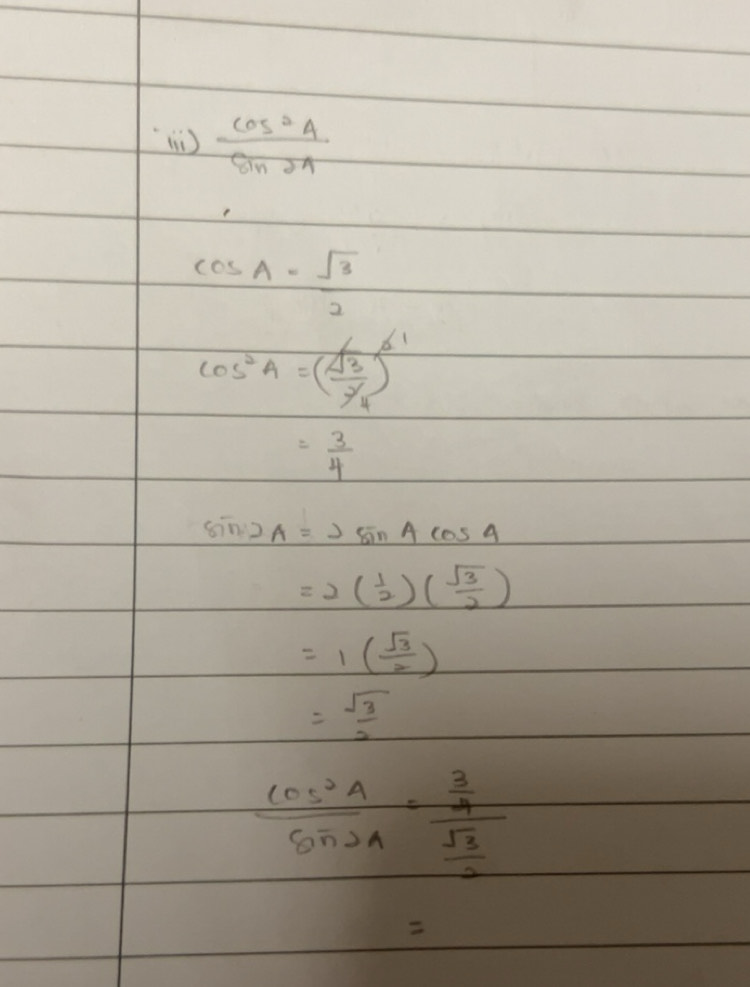 iii) cos²A / sin 2A
cos A = √3 / 2
cos²A = (√3 / 2 4)² 1
= 3/4
sin 2A = 2 sin A cos A
= 2 (1/2) (√3/2)
= 1 (√3/2)
= √3/2
cos²A / sin 2A = 3/4 / √3/2
=